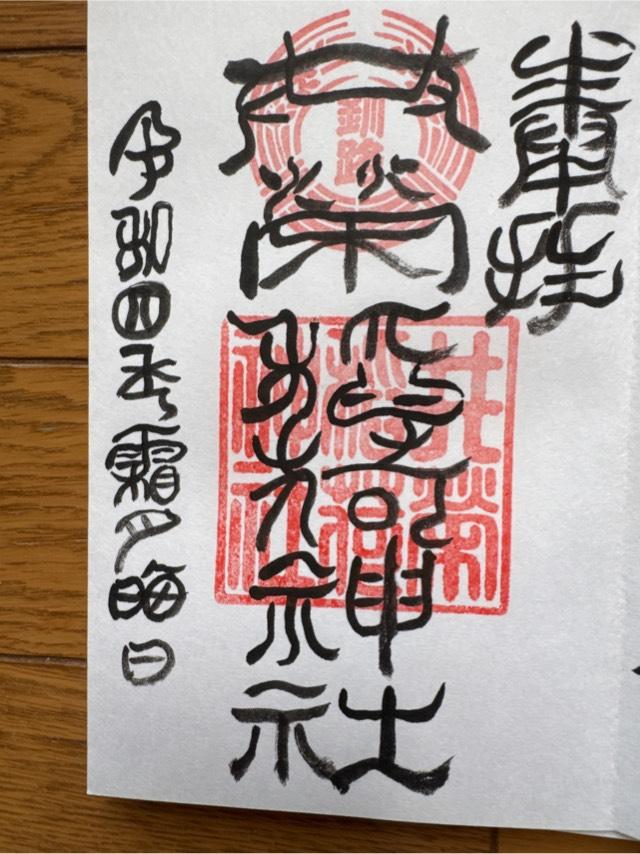 奉拝
釧路
稲荷神社
令和四年霜月晦日